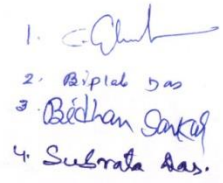 1.
2. Biplab Das
3. Bidhan Sarkar
4. Subrata Das.